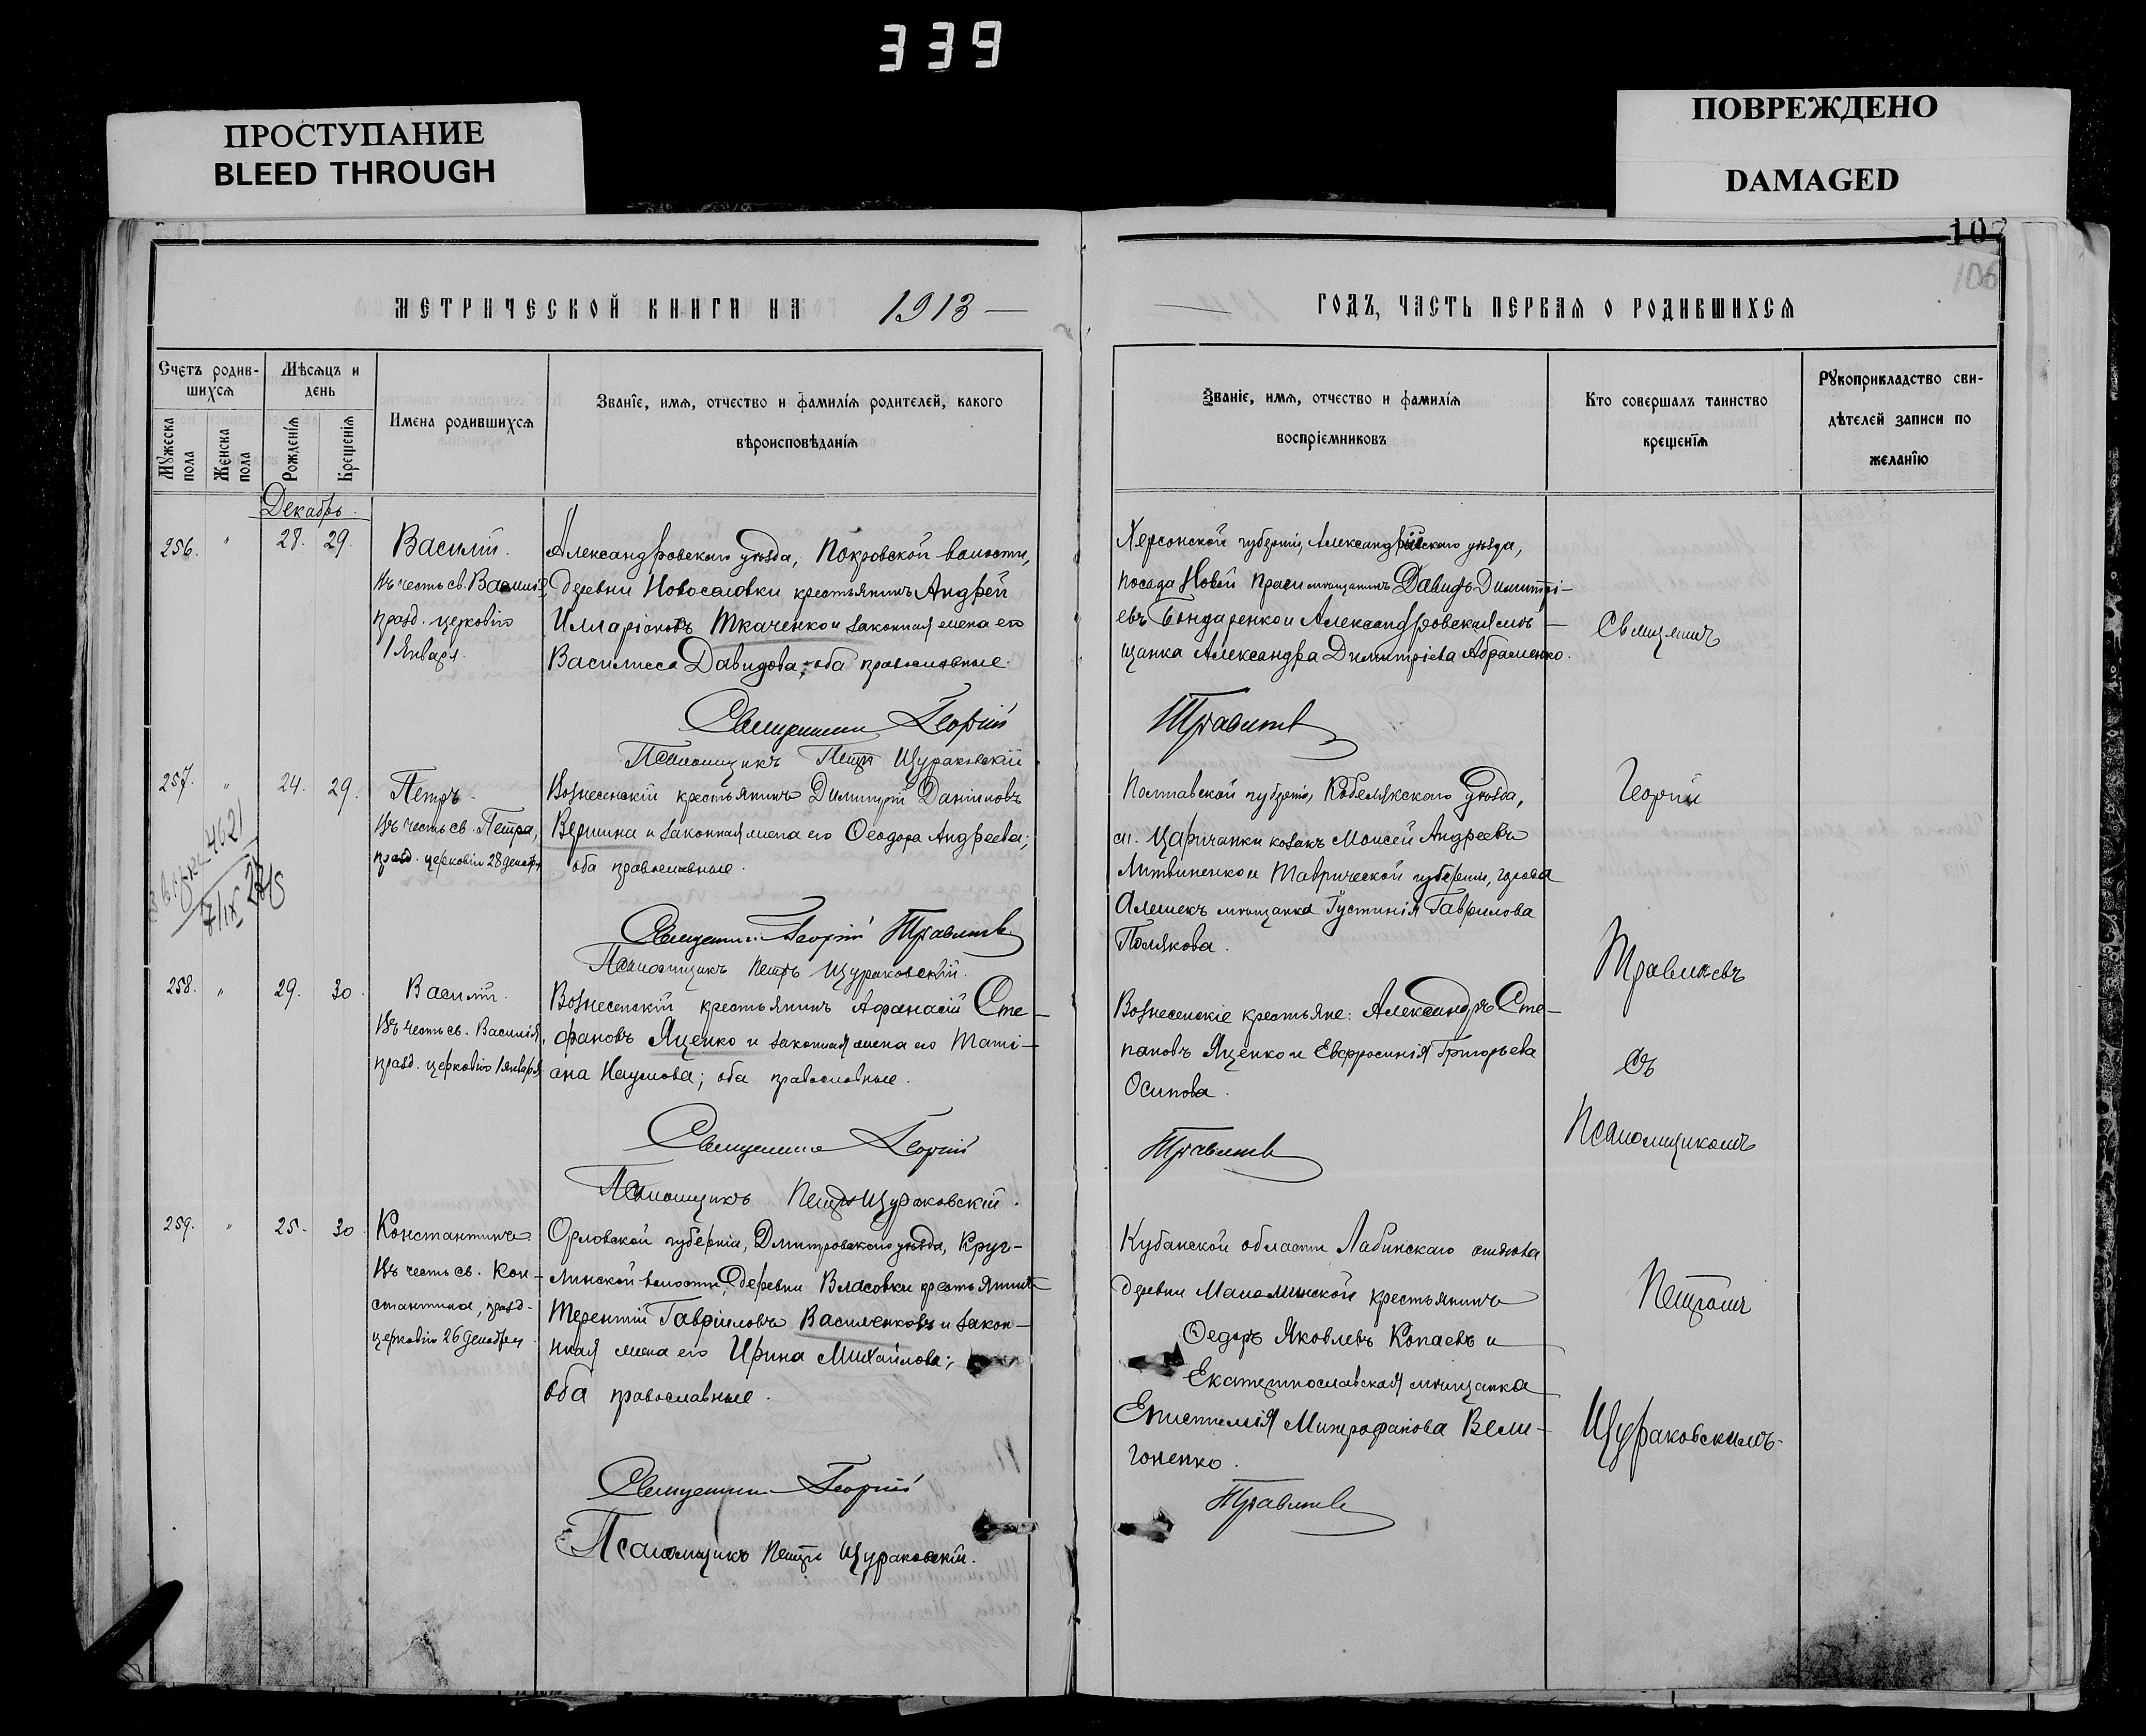 339
ПРОСТУПАНИЕ
BLEED THROUGH
ПОВРЕЖДЕНО
DAMAGED
107
106
МЕТРИЧЕСКОЙ КНИГИ НА 1913 —
Счетъ родив-
шихся
Мѣсяцъ и
день
Мужеска
пола
Женска
пола
Рожденія
Крещенія
Имена родившихся
Званіе, имя, отчество и фамилія родителей, какого
вѣроисповѣданія
Декабрь.
256. " 28. 29.
Василій.
Въ честь св. Василія,
празд. церковію
1 Января.
Александровскаго уѣзда, Покровской волости,
деревни Новоселовки крестьянинъ Андрей
Илларіоновъ Ткаченко и законная жена его
Василисса Давидова; оба православные.
Священникъ Георгій
Псаломщикъ Петръ Щураковскій
257. " 24. 29.
4621
Петръ.
Въ честь св. Петра,
празд. церковію 28 декабря
Вознесенскій крестьянинъ Димитрій Даніиловъ
Вершина и законная жена его Ѳеодора Андреева;
оба православные.
Священникъ Георгій Травлевъ
Псаломщикъ Петръ Щураковскій.
258. " 29. 30.
Василій.
Въ честь св. Василія,
празд. церковію 1 января
Вознесенскій крестьянинъ Афанасій Сте-
фановъ Яценко и законная жена его Таті-
ана Наумова; оба православные.
Священникъ Георгій
Псаломщикъ Петръ Щураковскій.
259. " 25. 30.
Константинъ.
Въ честь св. Кон-
стантина, празд.
церковію 26 декабря.
Орловской губерніи, Дмитровскаго уѣзда, Круг-
линской волости, деревни Власовки крестьянинъ
Терентій Гавріиловъ Василенковъ и закон-
ная жена его Ирина Михайлова;
оба православные.
Священникъ Георгій
Псаломщикъ Петръ Щураковскій.
ГОДЪ, ЧАСТЬ ПЕРВАЯ О РОДИВШИХСЯ
Званіе, имя, отчество и фамилія
воспріемниковъ
Кто совершалъ таинство
крещенія
Рукоприкладство сви-
дѣтелей записи по
желанію
Херсонской губерніи, Александрійскаго уѣзда,
посада Новой Праги мѣщанинъ Давидъ Димитрі-
евъ Бондаренко и Александровская мѣ-
щанка Александра Димитріева Абраменко.
Травлевъ
Полтавской губерніи, Кобелякскаго уѣзда,
м. Царичанки козакъ Моисей Андреевъ
Литвиненко и Таврической губерніи, города
Алешекъ мѣщанка Іустинія Гаврилова
Полякова.
Вознесенскіе крестьяне: Александръ Сте-
пановъ Яценко и Евфросинія Григорьева
Осипова.
Травлевъ
Кубанской области Лабинскаго отдѣла
деревни крестьянинъ
Ѳедоръ Яковлевъ Копаевъ и
Екатеринославская мѣщанка
Епистимія Митрофанова Вели-
гоненко.
Травлевъ
Священникъ
Георгій
Травлевъ
съ
Псаломщикомъ
Петромъ
Щураковскимъ.